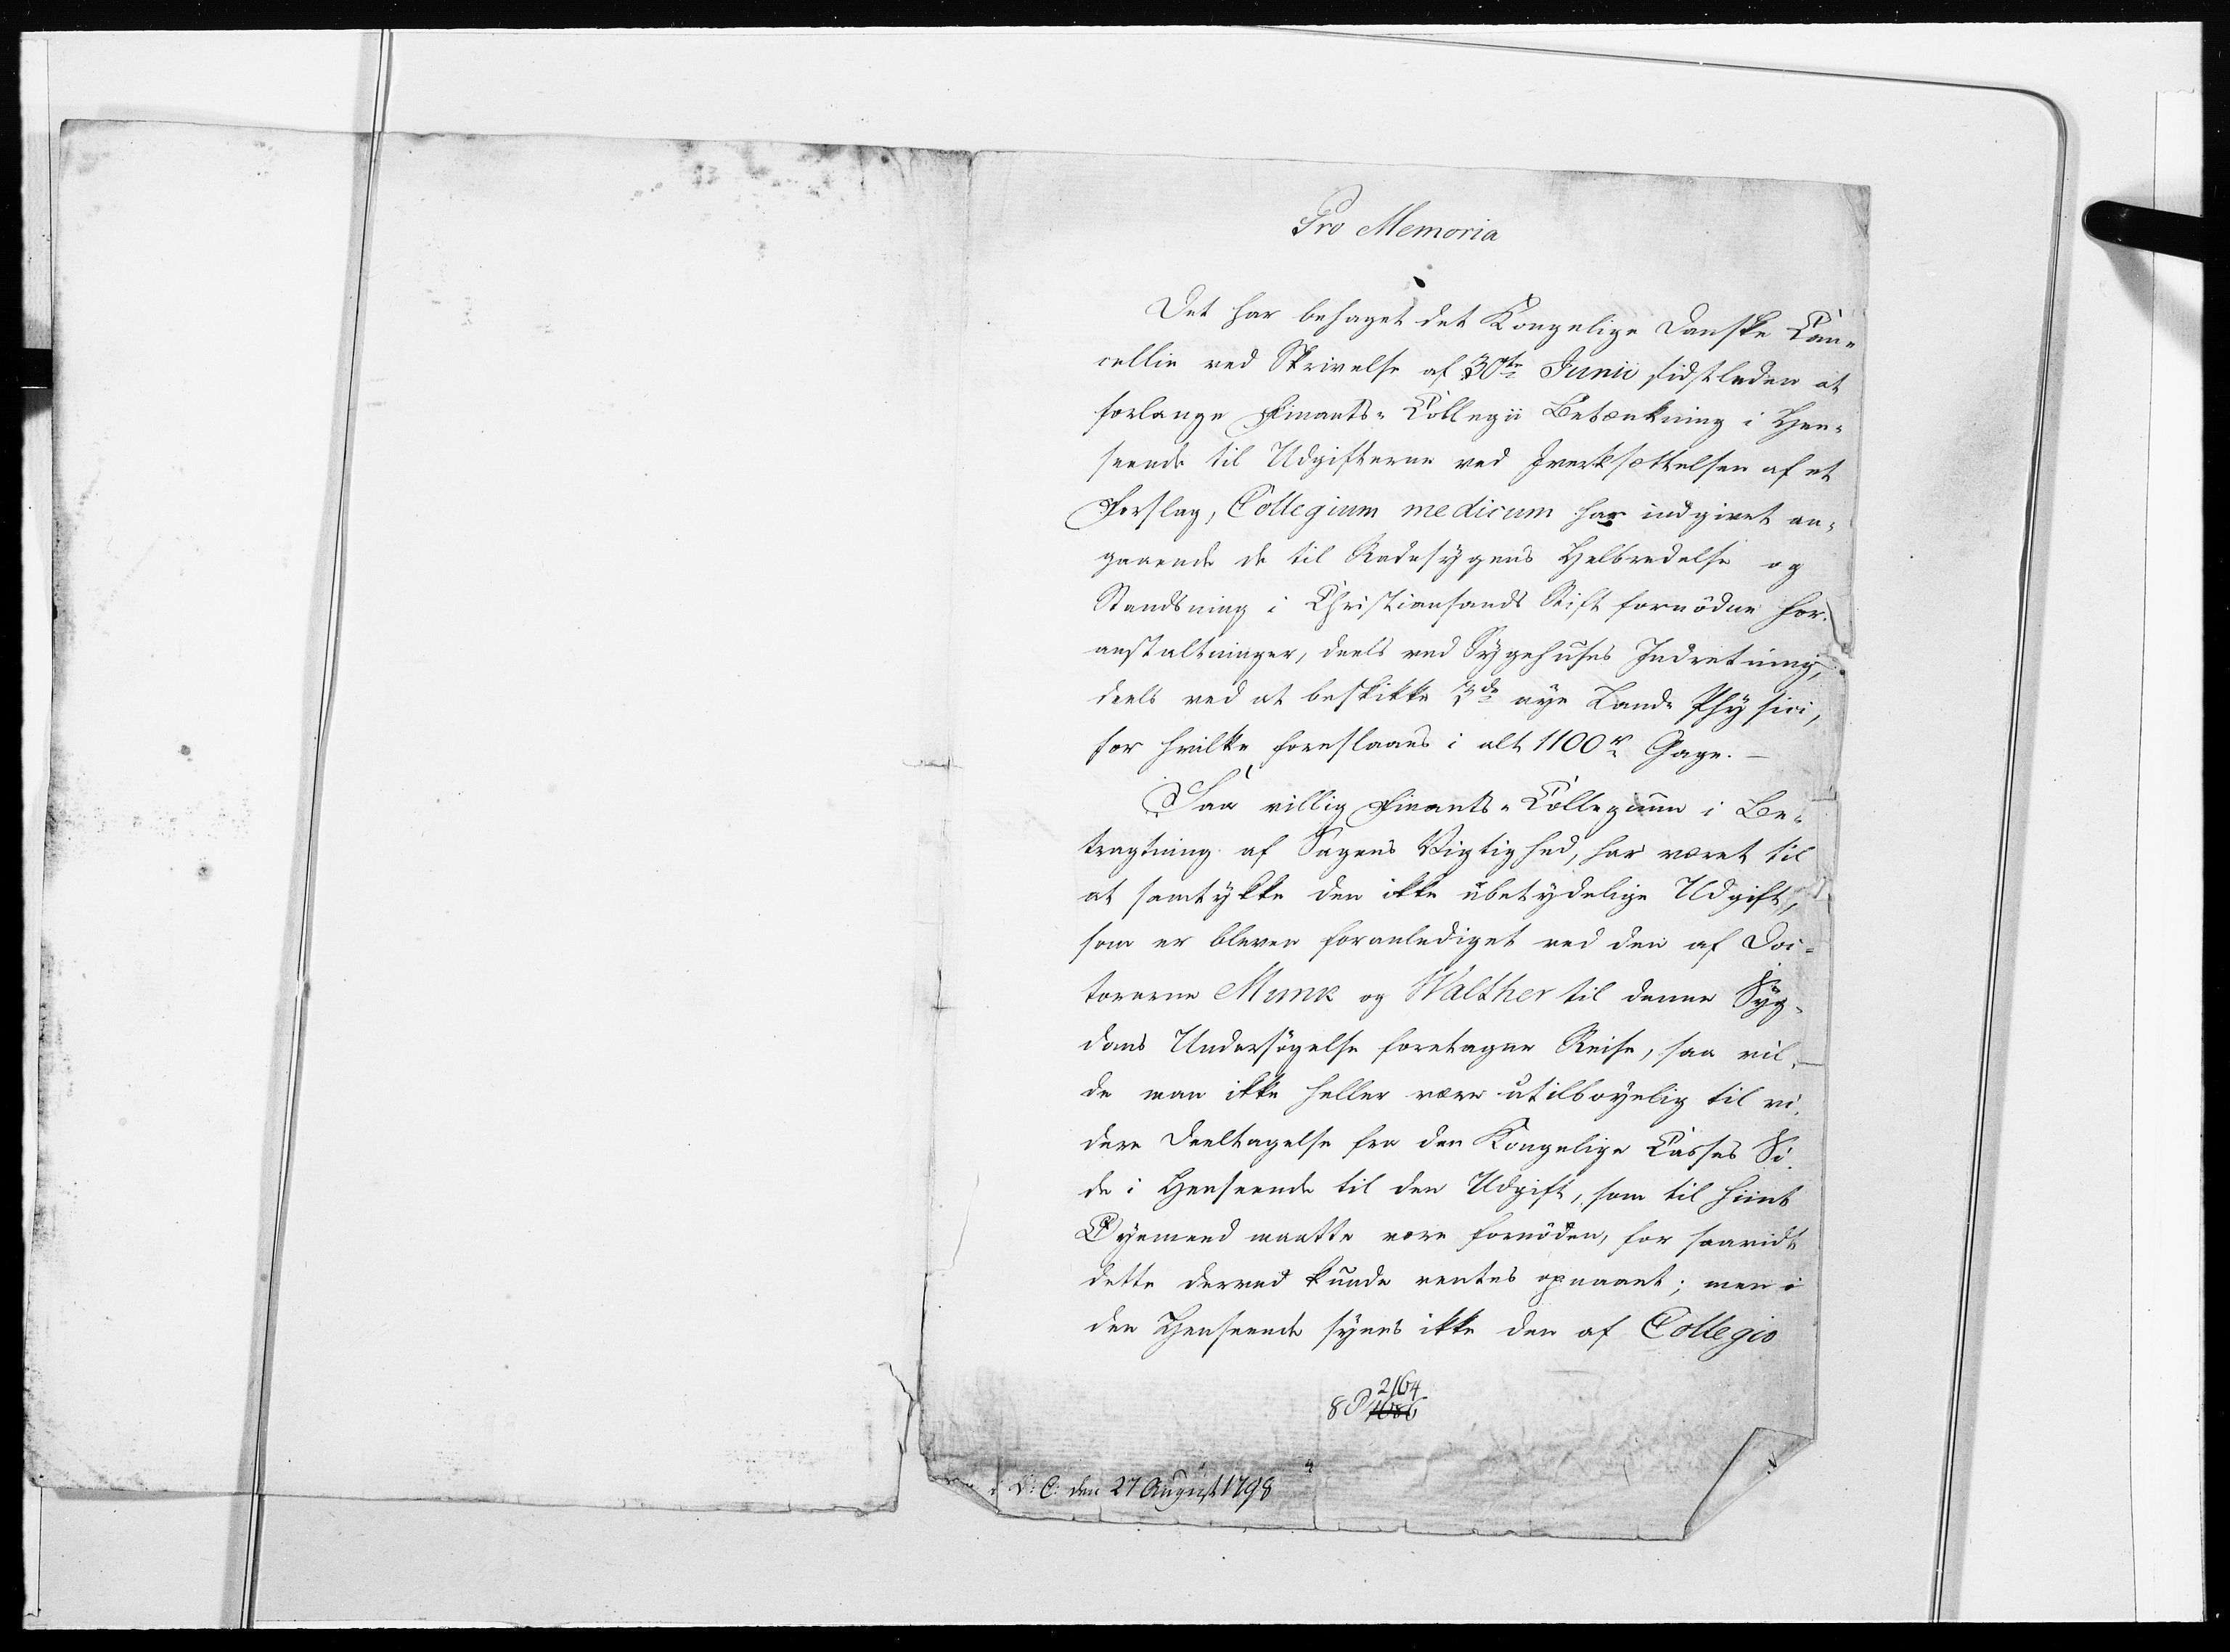 Pro Memoria
Det har behaget det Kongelige Danske Can=
cellie ved Skrivelse af 30te Junii sidstleden at
forlange Finants=Collegii Betænkning i Hen=
seende til Udgifterne ved Iverksættelsen af et
Forslag, Collegium medicum har indgivet an=
gaaende de til Radesygens Helbredelse og
Standsning i Christiansands Stift fornödne For=
anstaltninger, deels ved Sygehuses Indretning,
deels ved at beskikke 3de nye Land=Physici,
for hvilke foreslaaes i alt 1100 r Gage. —
Saa villig Finants=Collegium i Be=
tragtning af Sagens Vigtighed, har været til
at samtykke den ikke ubetydelige Udgift,
som er bleven foranlediget ved den af Doc=
torerne Munk og Walther til denne Syg=
doms Undersögelse foretagne Reise, saa vil=
de man ikke heller være utilbøyelig til vi=
dere Deeltagelse fra den Kongelige Casses Si=
de i Henseende til den Udgift, som til hiint
Öyemeed maatte være fornöden, for saavidt
dette derved kunde ventes opnaaet; men i
den Henseende synes ikke den af Collegio
2164
8 P 1086
i D: C: den 27 August 1798